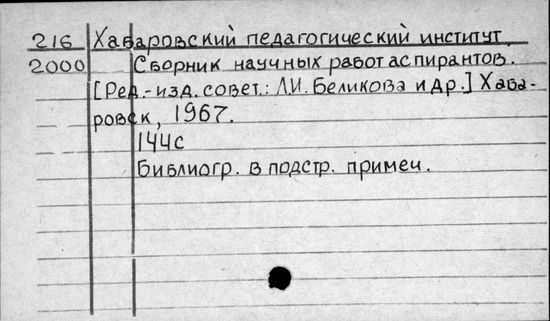 216 Хабаровский педагогический институт.
2000 Сборник научных работ аспирантов.
[Ред.-изд. совет.: Л.И. Беликова и др.] Хаба-
ровск, 1967.
144с
Библиогр. в подстр. примеч.